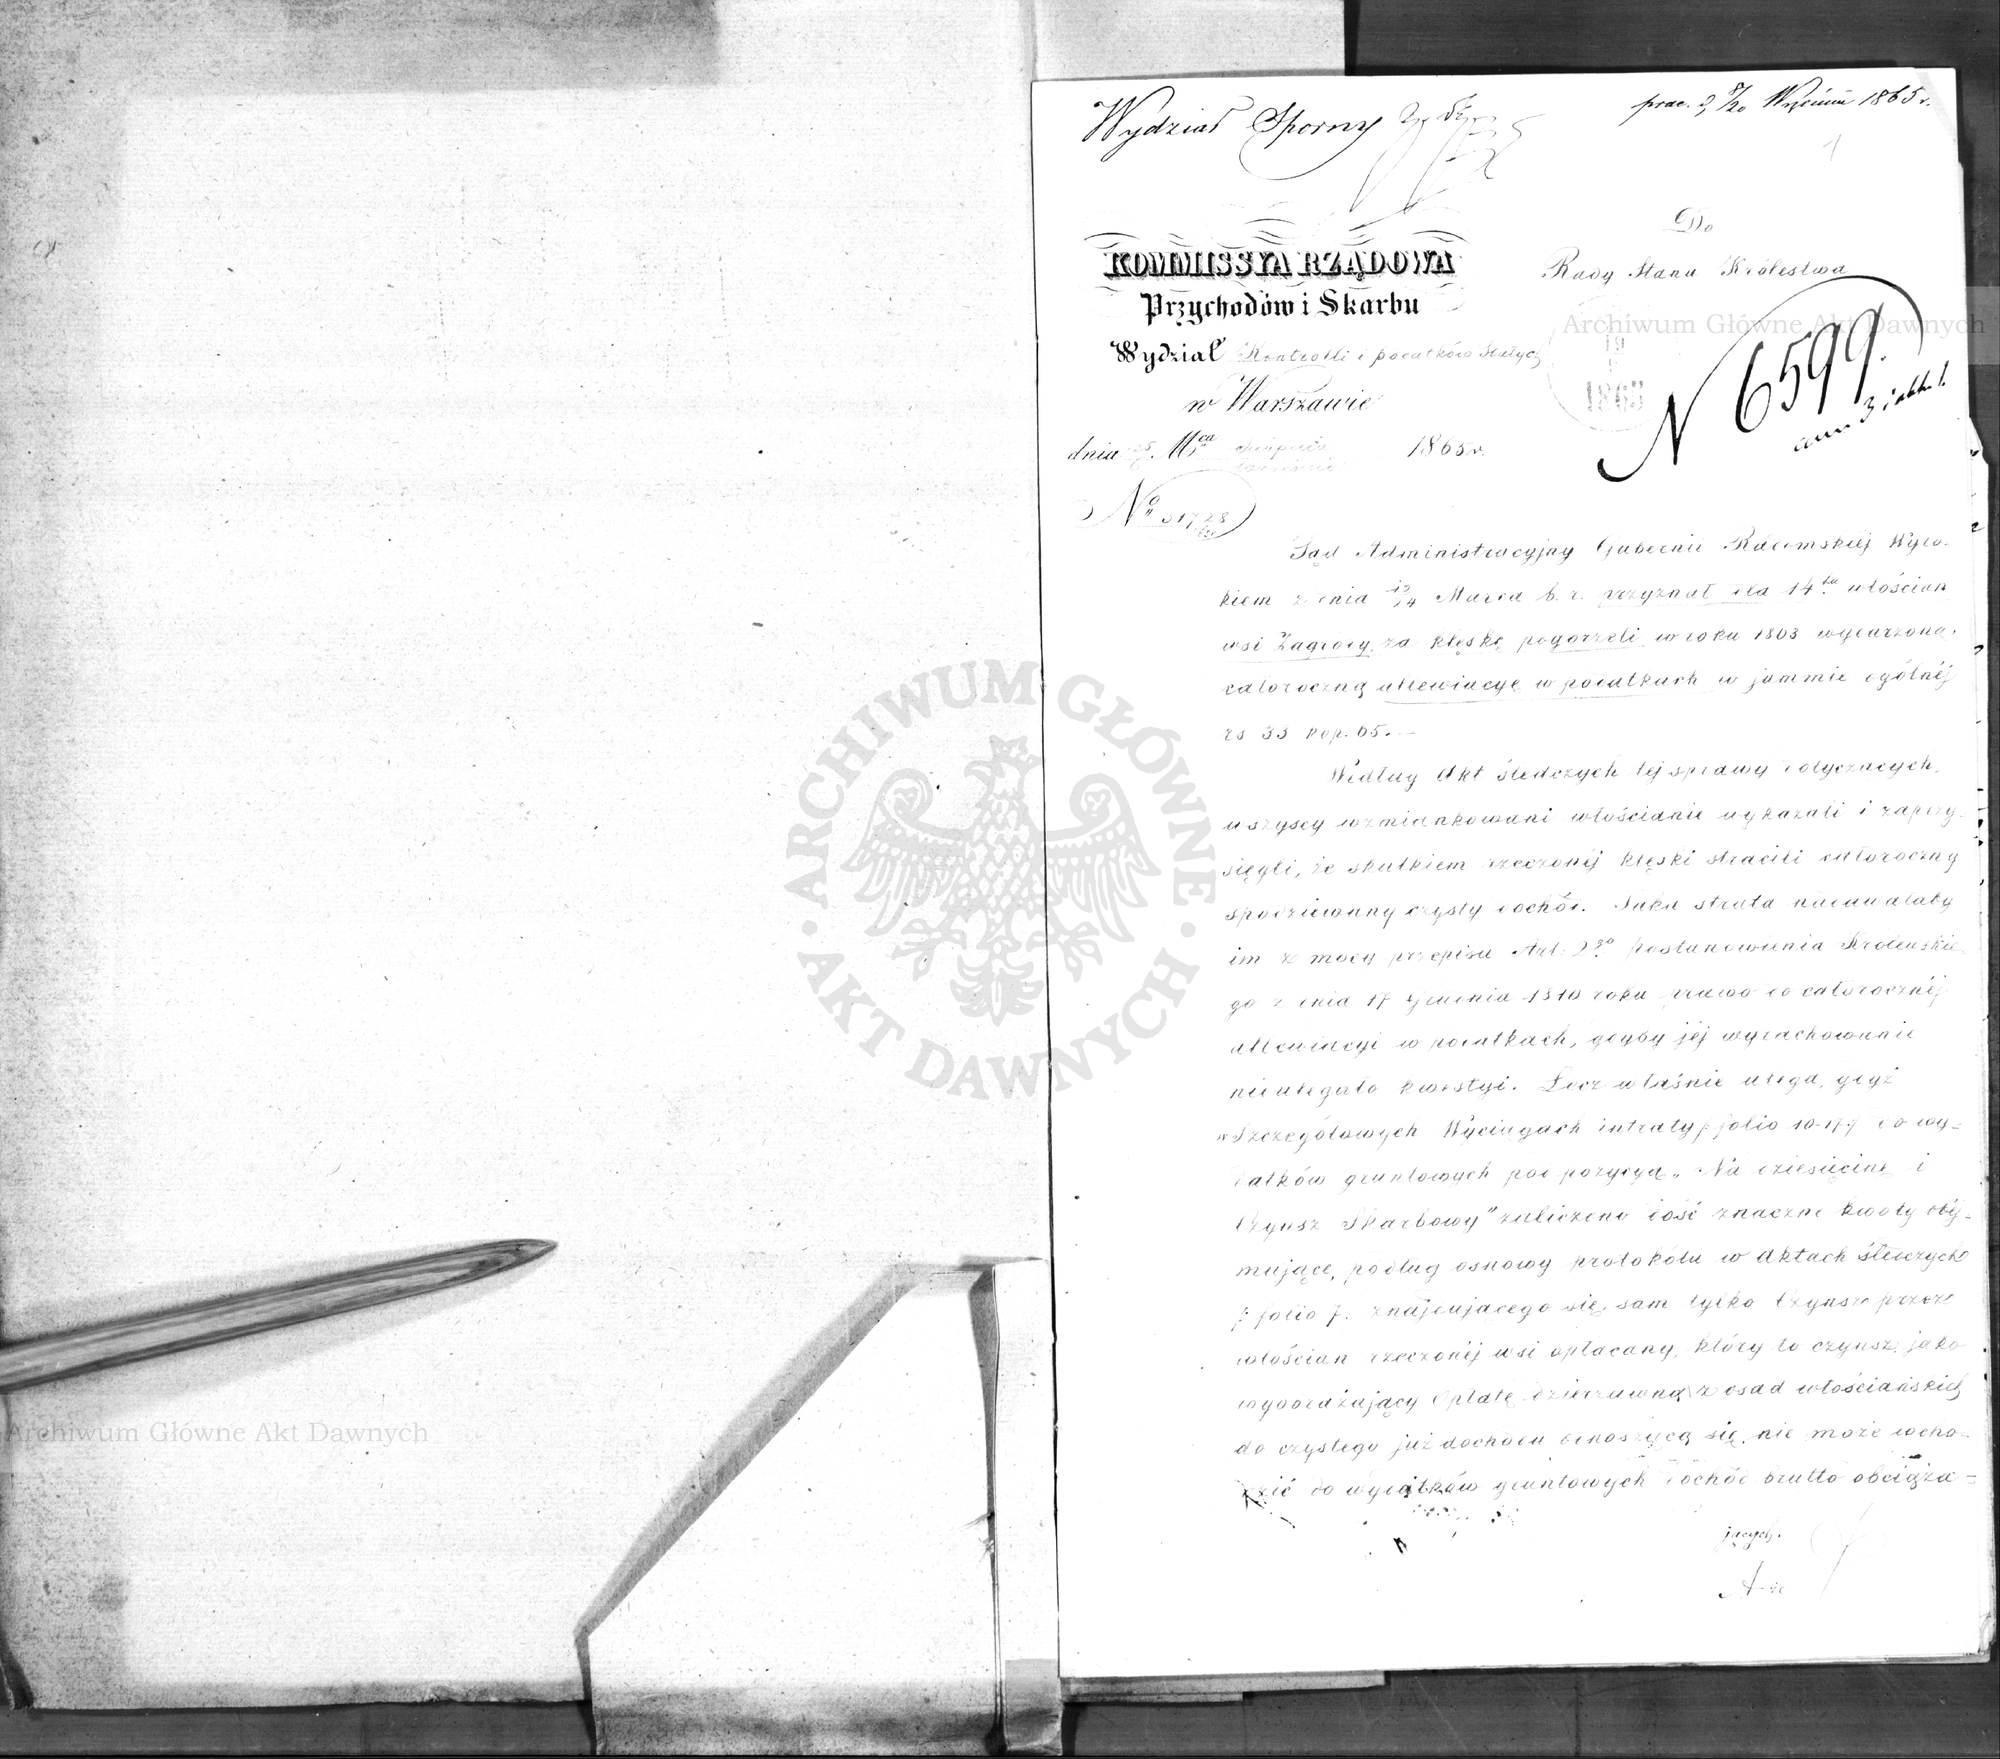 Wydział Sporny
prac. d. 8/20 Września 1865 r.
1
Do
Rady Stanu Królestwa
KOMMISSYA RZĄDOWA
Przychodów i Skarbu
Wydział Kontrolli i podatków Stałych
w Warszawie
dnia Mca Sierpnia 1865 r.
Września
No 51728
19
1865
N 6599.
Archiwum Główne Akt Dawnych
Sąd Administracyjny Gubernii Radomskiéj Wyro-
kiem z dnia 12/24 Marca b. r. przyznał dla 14tu włościan
wsi Zagrody, za klęskę pogorzeli w roku 1863 wydarzoną,
całoroczną allewiacyę w podatkach w summie ogólnéj
rs 33 kop. 65.—
Według Akt śledczych téj sprawy dotyczących,
wszyscy wzmiankowani włościanie wykazali i zaprzy-
sięgli, że skutkiem rzeczonéj klęski stracili całoroczny
spodziewany czysty dochód. Taka strata nadawałaby
im z mocy przepisu Art: 2go Postanowienia Królewskie-
go z dnia 17 Grudnia 1810 roku prawo do całorocznéj
allewiacyi w podatkach, gdyby jéj wyrachowanie
nieulegało kwestyi. Lecz właśnie ulega, gdyż
w Szczegółowych Wyciągach intraty /: folio 10-17 :/ do wy-
datków gruntowych pod pozycyą „Na dziesięcinę i
Czynsz Skarbowy" zaliczono dość znaczne kwoty obéj-
mujące, podług osnowy protokołu w Aktach śledczych
/: folio 7. znajdującego się, sam tylko Czynsz przez
włościan rzeczonéj wsi opłacany, który to czynsz, jako
wyobrażający Opłatę dzierżawną z osad włościańskich
do czystego już dochodu odnoszącą się, nie może wcho-
dzić do wydatków gruntowych dochód brutto obciąża-
jących.
ARCHIWUM GŁÓWNE AKT DAWNYCH
Archiwum Główne Akt Dawnych